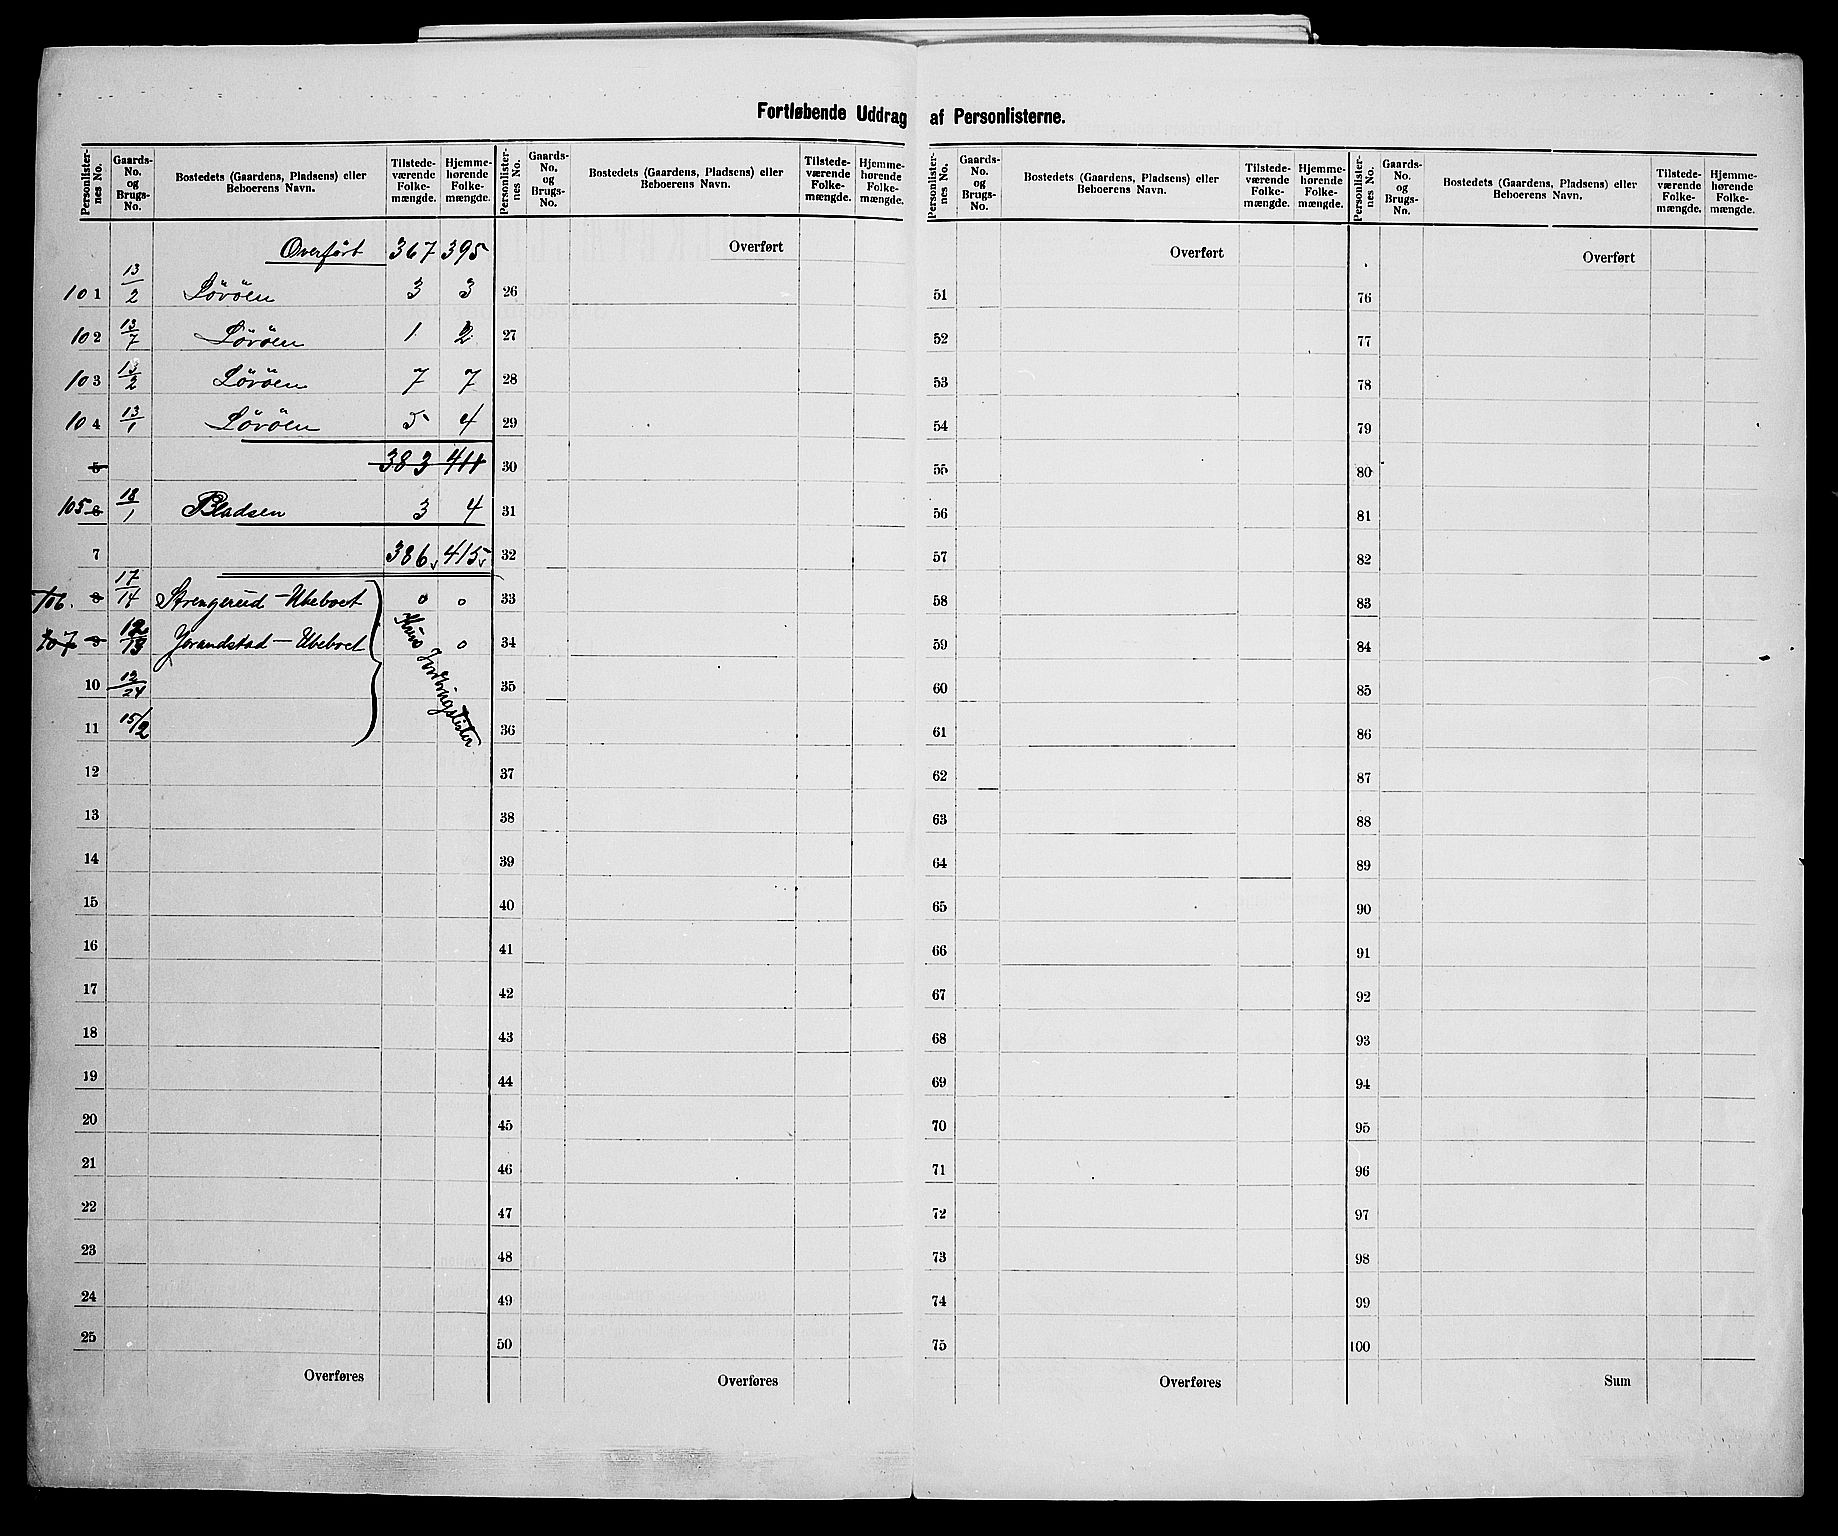 Fortløbende Uddrag af Personlisterne.
Personlister-nes No. Gaards-No. og Brugs-No. Bostedets (Gaardens, Pladsens) eller Beboerens Navn. Tilstede-værende Folke-mængde. Hjemme-hørende Folke-mængde.
Overført 367 395
101 13/2 Sørøen 3 3
102 13/7 Sørøen 1 2
103 13/2 Sørøen 7 7
104 13/1 Sørøen 5 4
5 383 411
105 6 18/1 Pladsen 3 4
7 386 415
106 8 17/14 Strengerud - Ubeboet 0 0
107 9 12/13 Jorandstad - Ubeboet 0
10 12/24
11 15/2
Kuns Jordbrugslister
12
13
14
15
16
17
18
19
20
21
22
23
24
25
Overføres
Personlister-nes No. Gaards-No. og Brugs-No. Bostedets (Gaardens, Pladsens) eller Beboerens Navn. Tilstede-værende Folke-mængde. Hjemme-hørende Folke-mængde.
Overført
26
27
28
29
30
31
32
33
34
35
36
37
38
39
40
41
42
43
44
45
46
47
48
49
50
Overføres
Personlister-nes No. Gaards-No. og Brugs-No. Bostedets (Gaardens, Pladsens) eller Beboerens Navn. Tilstede-værende Folke-mængde. Hjemme-hørende Folke-mængde.
Overført
51
52
53
54
55
56
57
58
59
60
61
62
63
64
65
66
67
68
69
70
71
72
73
74
75
Overføres
Personlister-nes No. Gaards-No. og Brugs-No. Bostedets (Gaardens, Pladsens) eller Beboerens Navn. Tilstede-værende Folke-mængde. Hjemme-hørende Folke-mængde.
Overført
76
77
78
79
80
81
82
83
84
85
86
87
88
89
90
91
92
93
94
95
96
97
98
99
100
Sum